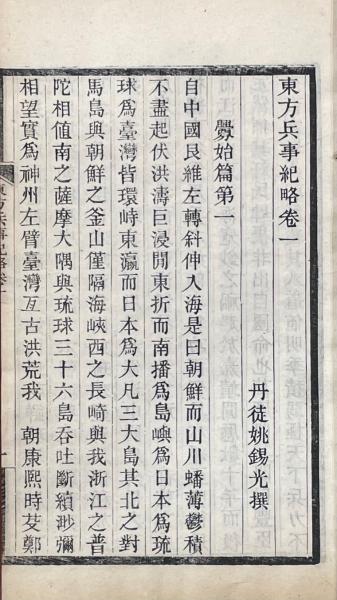 東方兵事紀略卷一
丹徒姚錫光撰
釁始篇第一
自中國艮維左轉斜伸入海是曰朝鮮而山川蟠薄鬱積
不盡起伏洪濤巨浸閒東折而南播爲島嶼爲日本爲琉
球爲臺灣皆環峙東瀛而日本爲大凡三大島其北之對
馬島與朝鮮之釜山僅隔海峽西之長崎與我浙江之普
陀相値南之薩摩大隅與琉球三十六島吞吐斷續渺彌
相望實爲神州左臂臺灣亙古洪荒我 朝康熙時芟鄭
東方兵事紀略卷一
一